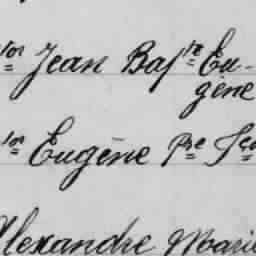 Jean Bapte Eu-
gène
Eugène Pre
Alexandre Marie